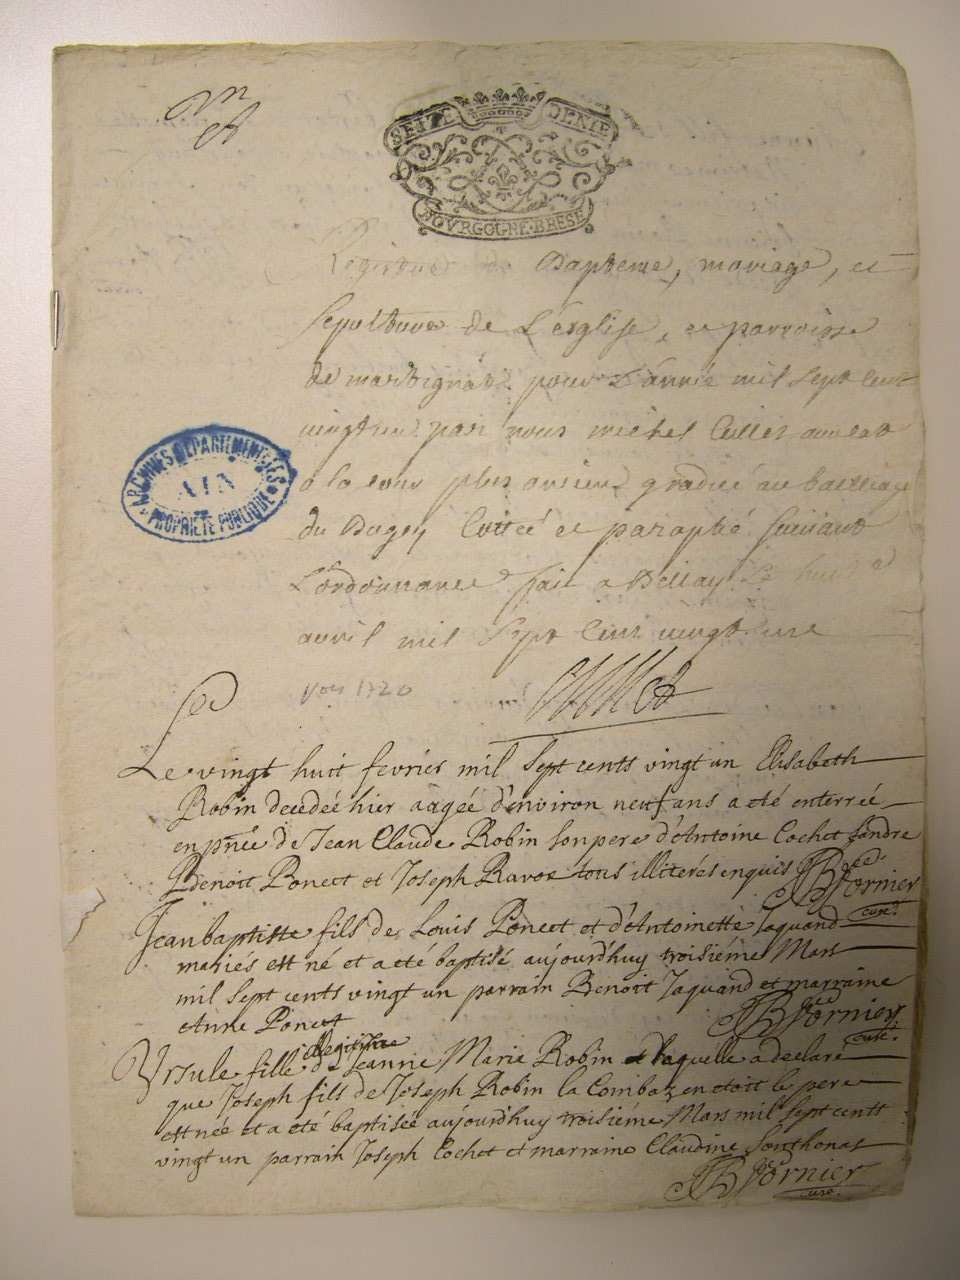 SEIZE DENIE
BOVRGOGNE·BRESE
Registre de Bapteme, mariage, et
Sepultures de L'esglise, et parroisse
de martignat pour L'année mil sept cent
vingt un par nous michel Cullet avocat
a la cour plus ancien gradué au bailliage
du Bugey Cotté et paraphé suivant
L'ordonnance fait a Bellay le huit
avril mil sept cent vingt une
ARCHIVES DEPARTEMENTALES
AIN
PROPRIÉTÉ PUBLIQUE
1720
Le vingt huit fevrier mil sept cents vingt un Elisabeth
Robin decedeé hier aagée d'environ neuf ans a eté enterreé
en pñce de Jean Claude Robin son pere d'Antoine Cochet Landre
Benoit Ponect et Joseph Ravoz tous illiterés enquis
JB Fornier
curé
Jean baptiste fils de Louis Ponect et d'Antoinette Jaquand
mariés est né et a eté baptisé aujourd'huy troisiéme Mars
mil sept cents vingt un parrain Benoit Jaquand et marraine
Anne Ponect
JB Fornier
curé
Ursule fille illegitime de Jeanne Marie Robin laquelle a declaré
que Joseph fils de Joseph Robin la Combaz en etoit le pere
est neé et a eté baptisée aujourd'huy troisiéme Mars mil sept cents
vingt un parrain Joseph Cochet et marraine Claudine Sonthonas
JB Fornier
curé